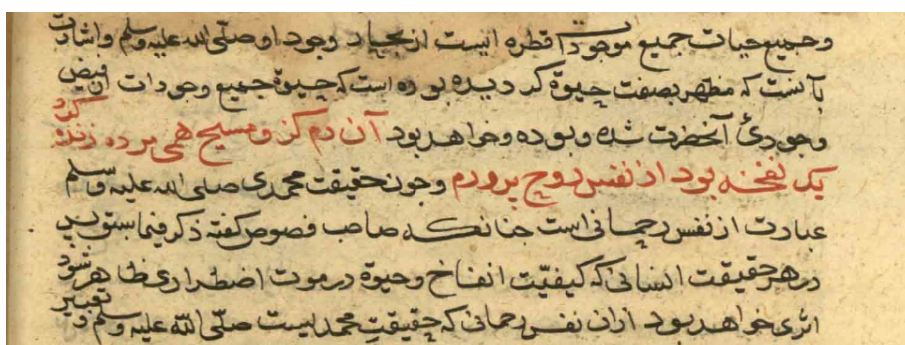 وجمیع حیات جمیع موجودات قطره ایست از بحیاد وجود او صلّی الله علیه وسلم واشارت
بآنست که مظهر بصفت حیوة کردیده بوده است که حیوة جمیع وجودات از فیض
وجودئ آنحضرت شده وبوده وخواهد بود آن دم کز و مسیح همی مرده زنده کرد
یک نفخه بود از نفس روح پرورم وجون حقیقت محمدی صلی الله علیه وسلم
عبارت از نفس رحمانی است جنانکه صاحب فصوص کفته ذکر فیما سبق پس
در هر حقیقت انسانی که کیفیّت انفاخ وحیوة در موت اضطراری ظاهر شود
اثری خواهد بود ازان نفس رحمانی که حقیقت محمدیست صلّی الله علیه وسلم و تعبیر